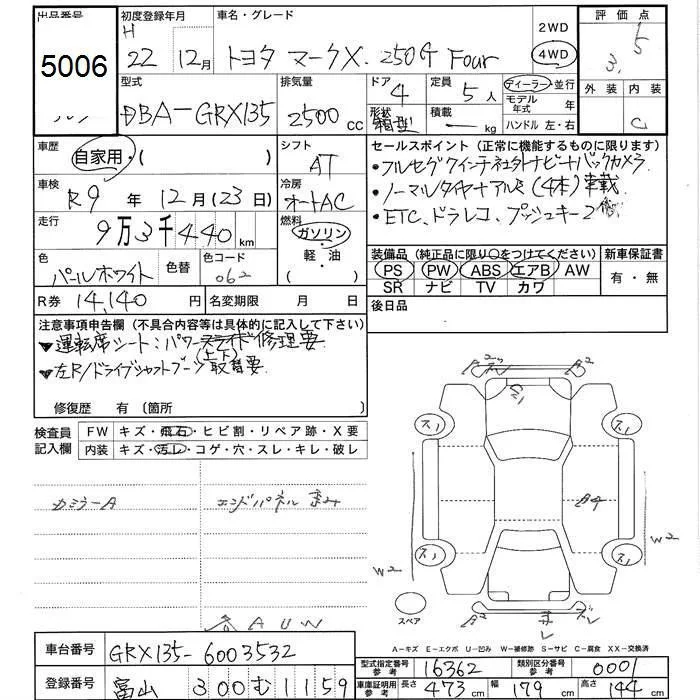 出品番号
5006
初度登録年月
H 22 12月
車名・グレード
トヨタ マークX 250G Four
2WD
4WD
評価点
3.5
外装 内装
C
型式
DBA-GRX135
排気量
2500 cc
ドア
4
形状
箱型
定員
5 人
積載
― kg
ディーラー・並行
モデル年式 年
ハンドル 左・右
車歴
自家用・( )
シフト
AT
車検
R9 年 12月 (23日)
冷房
オートAC
走行
9万3千440 km
燃料
ガソリン・
軽・油
( )
色
パールホワイト
色替
色コード
062
R券 14,140 円
名変期限 月 日
セールスポイント (正常に機能するものに限ります)
・フルセグ ナビ バックカメラ
・ノーマルタイヤ アルミ (4本) 車載
・ETC、ドラレコ、プッシュキー2
装備品 (純正品に限り○をつけてください)
PS PW ABS エアB AW
SR ナビ TV カワ
新車保証書
有・無
後日品
注意事項申告欄 (不具合内容等は具体的に記入して下さい)
運転席シート:パワースライド修理要
(上下)
左R/ドライブシャフトブーツ取替要
修復歴 有 (箇所
検査員記入欄
FW キズ・飛石・ヒビ割・リペア跡・X要
内装 キズ・汚レ・コゲ・穴・スレ・キレ・破レ
カミラーA
エンドパネル
AUW
A2
A2
ズレ
ス1
ス1
A4
W2
W2
ス1
ス1
スペア
A2
ズレ
A-キズ E-エクボ U-凹み W-補修跡 S-サビ C-腐食 XX-交換済
車台番号
GRX135-6003532
登録番号
富山 300 む 1159
型式指定番号 参考
16362
類別区分番号 参考
0001
車庫証明用 参考
長さ 473 cm 幅 179 cm 高さ 144 cm